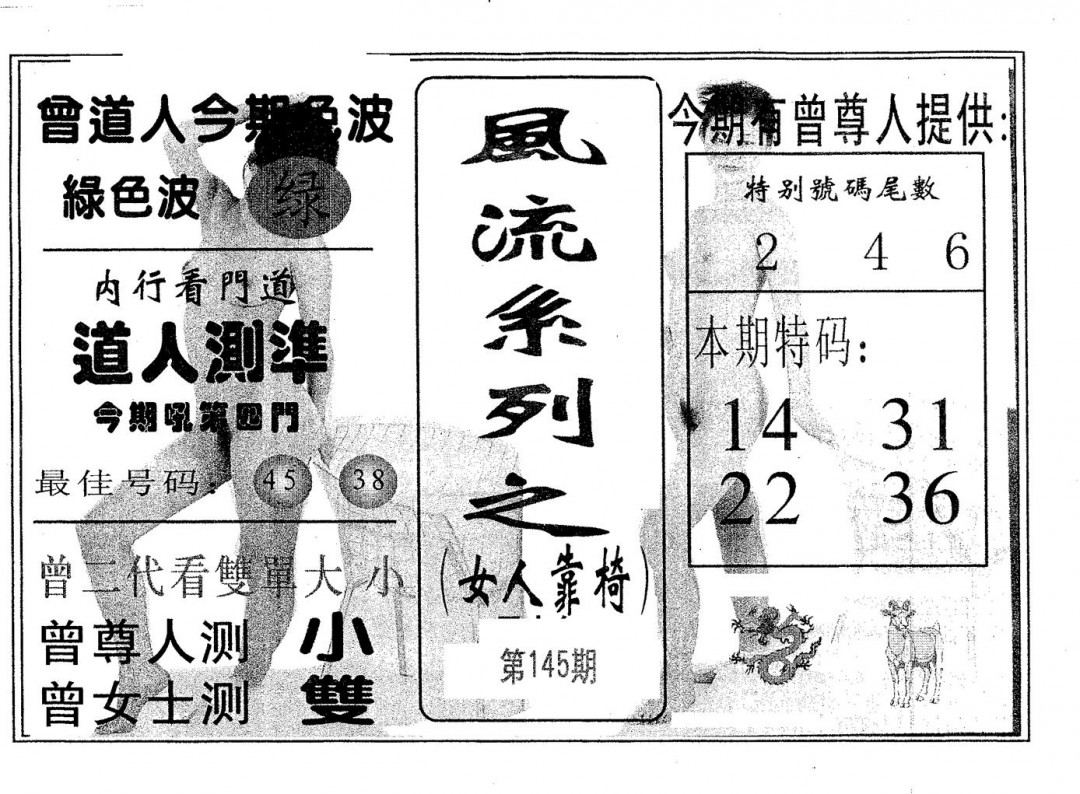 曾道人今期色波
綠色波 绿
内行看門道
道人測準
今期吼第四門
最佳号码: 45 38
曾二代看雙單大小
曾尊人测 小
曾女士测 雙
風流系列之
(女人靠椅)
第145期
今期有曾尊人提供:
特别號碼尾數
2 4 6
本期特码:
14 31
22 36